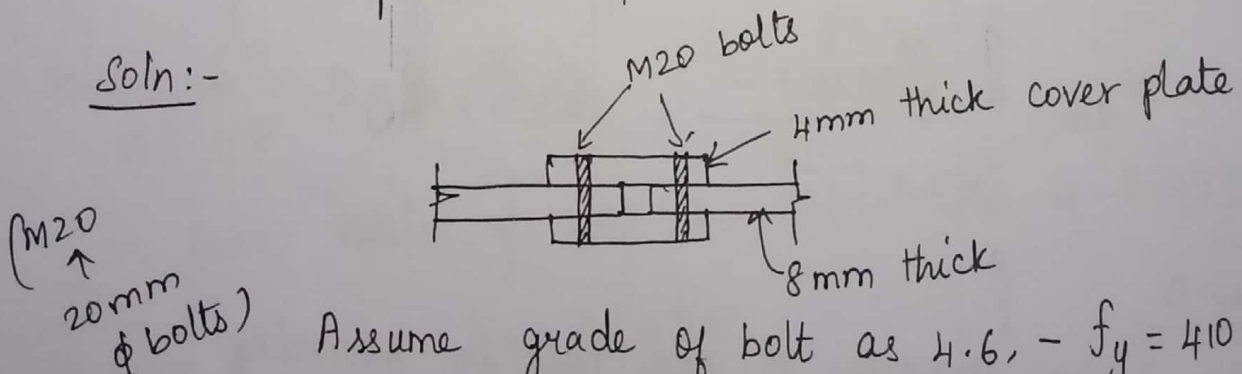 Soln:-
M20 bolts
4mm thick cover plate
8mm thick
(M20
↑
20mm
ϕ bolts)
Assume grade of bolt as 4.6, - fy = 410